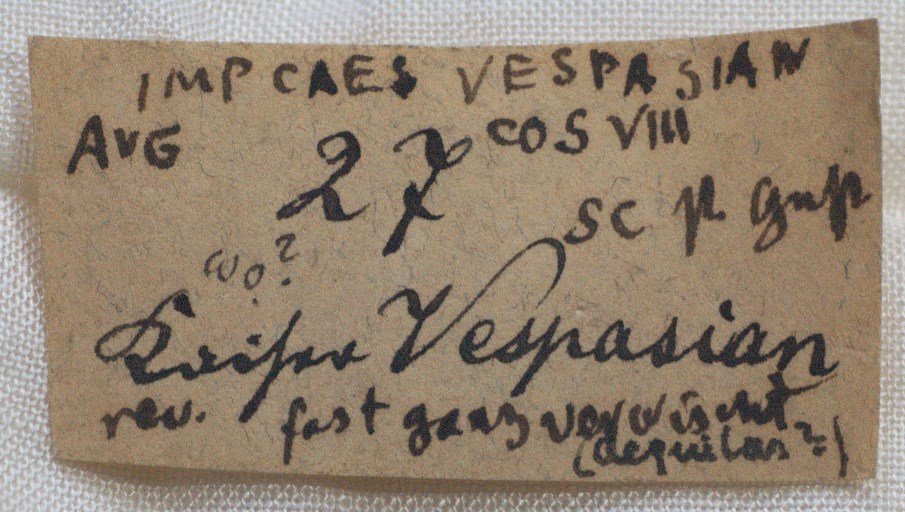 IMP CAES VESPASIAN
AVG 27 COS VIII
SC
wo?
Kaiser Vespasian
rev. fast ganz verwischt
(aequitas?)